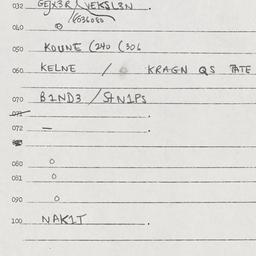 032 GEJX3R / VEKSL3N .
/ E036080
040
050 KOUNE (240 (306
060 KELNE / KRAGN QS TATE
070 B1ND3 / StN1PS
071 .
072 — .
080 o
081 o
090 o
100 NAK1T .